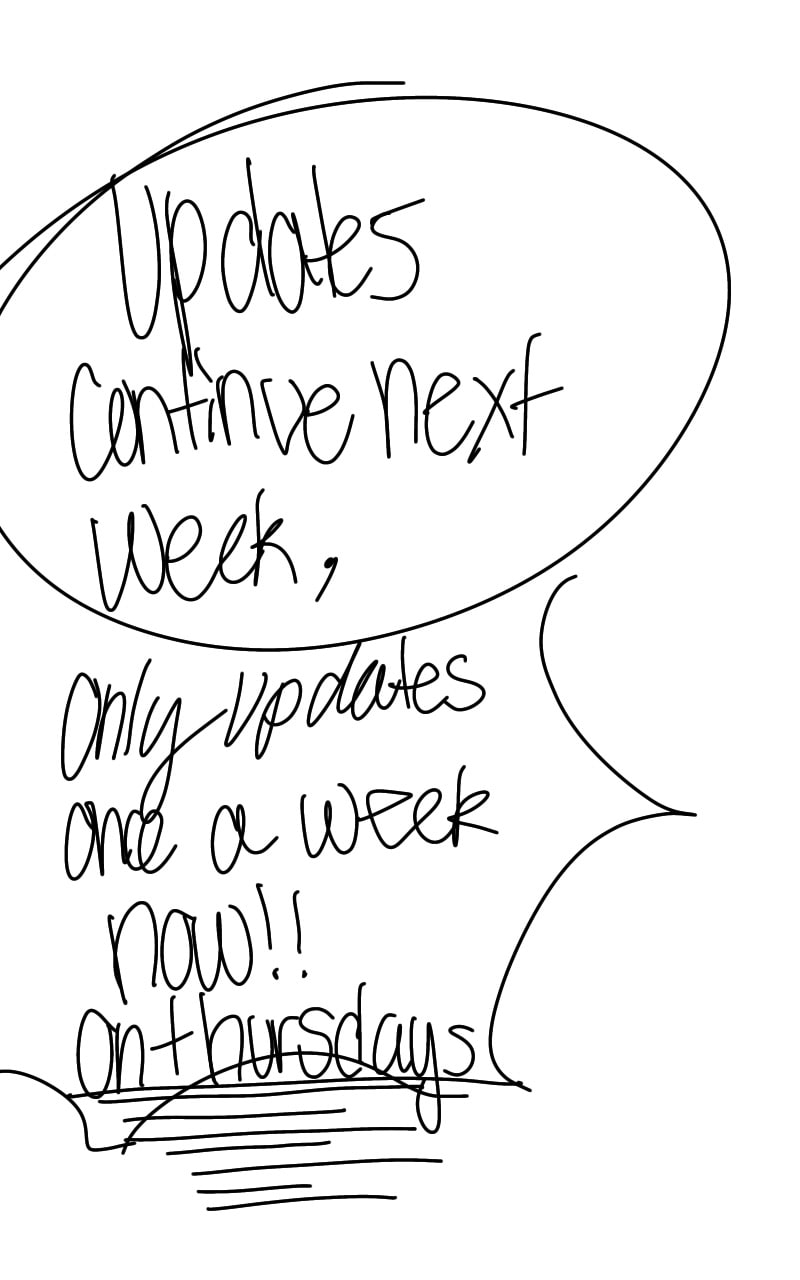 Updates
continue next
week,
only updates
once a week
now!!
on thursdays